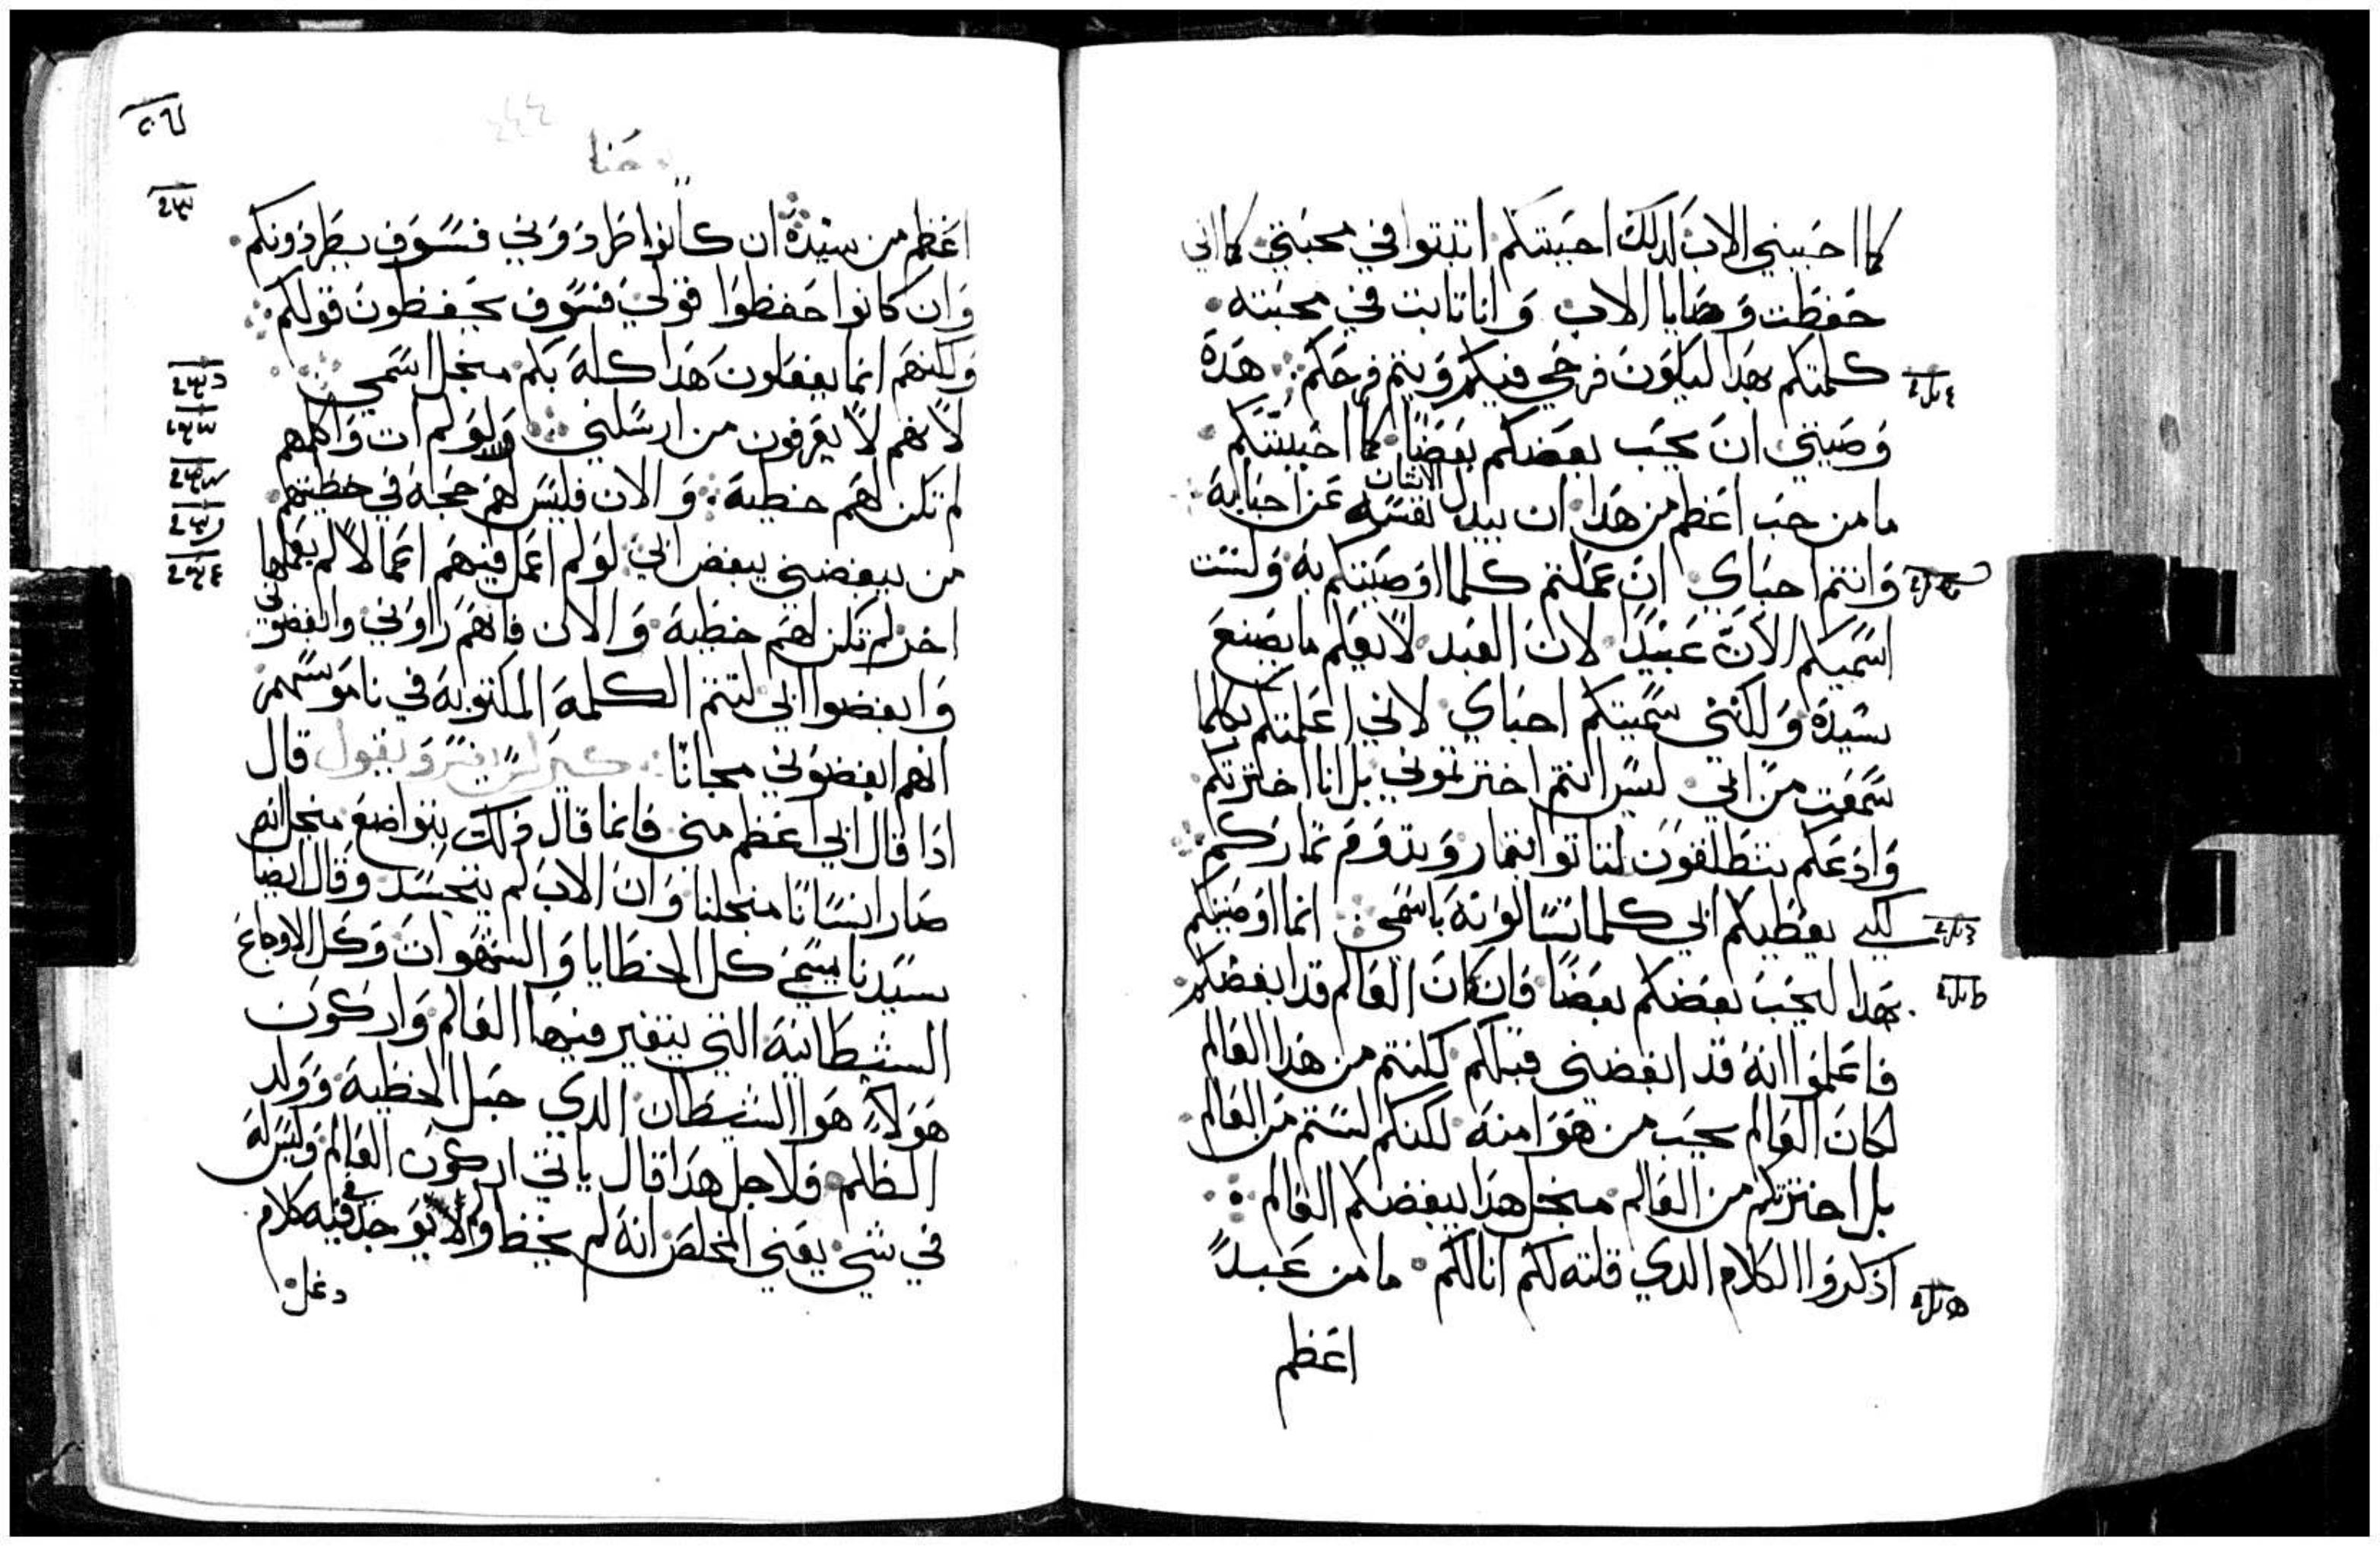 كما احبني الاب لدلك احببتكم اتبتوا في محبتي كما اني
حفظت وصايا الاب وانا تابت في محبته
كلمتكم بهدا ليكون فرحي فيكم ويتم فرحكم هده
وصيتي ان يحب بعضكم بعضا كما احببتكم
ما من حب اعظم من هدا ان يبدل الانسان نفسه عن احبايه
وانتم احباي ان عملتم كلما اوصيتكم به ولست
اسميكم الان عبيدا لان العبد لا يعلم ما يصنع
سيده ولكنني سميتكم احباي لاني اعلمتكم بكلما
سمعت من ابي ليس انتم اخترتموني بل انا اخترتكم
وادعكم تنطلقون لتاتوا بتمار وتدوم تماركم
لكي يعطيكم ابي كلما تسالونه باسمي انما اوصيتكم
بهدا ليحب بعضكم بعضا فان كان العالم قد ابغضكم
فاعلموا انه قد ابغضني قبلكم لو كنتم من هدا العالم
لكان العالم يحب من هو منه لكنكم لستم من العالم
بل اخترتكم من العالم منجل هدا يبغضكم العالم
اذكروا الكلام الدي قلته لكم انا لكم ما من عبد
اعظم
حنا
اعظم من سيده ان كانوا طردوني فسوف يطردونكم
وان كانوا حفظوا قولي فسوف يحفظون قولكم
ولكنهم انما يفعلون هدا كله بكم منجل اسمي
لانهم لا يعرفون من ارسلني ولو لم ات واكلمهم
لم تكن لهم خطية والان فليس لهم حجة في خطيتهم
من يبغضني يبغض ابي لو لم اعمل فيهم اعمالا لم يعملها
اخر لم تكن لهم خطية والان فانهم راوني وابغضوني
وابغضوا ابي لتتم الكلمة المكتوبة في ناموسهم
انهم ابغضوني مجانا كيرلس يفسر ويقول قال
اذا قال ابي اعظم مني فانما قال ذلك بتواضع منجل انه
صار انسانا منجلنا وان الاب لم يتجسد وقال ايضا
سيدنا يسمى كل الخطايا والشهوات وكل الاوجاع
الشيطانية التي يتغير فيها العالم واركون
هولاء هوا الشيطان الدي حبل الخطية وولد
الظلم فلاجل هدا قال ياتي اركون العالم وليس له
في شي يعني المخلص انه لم يخط ولا يوجد في فيه كلام
دغل